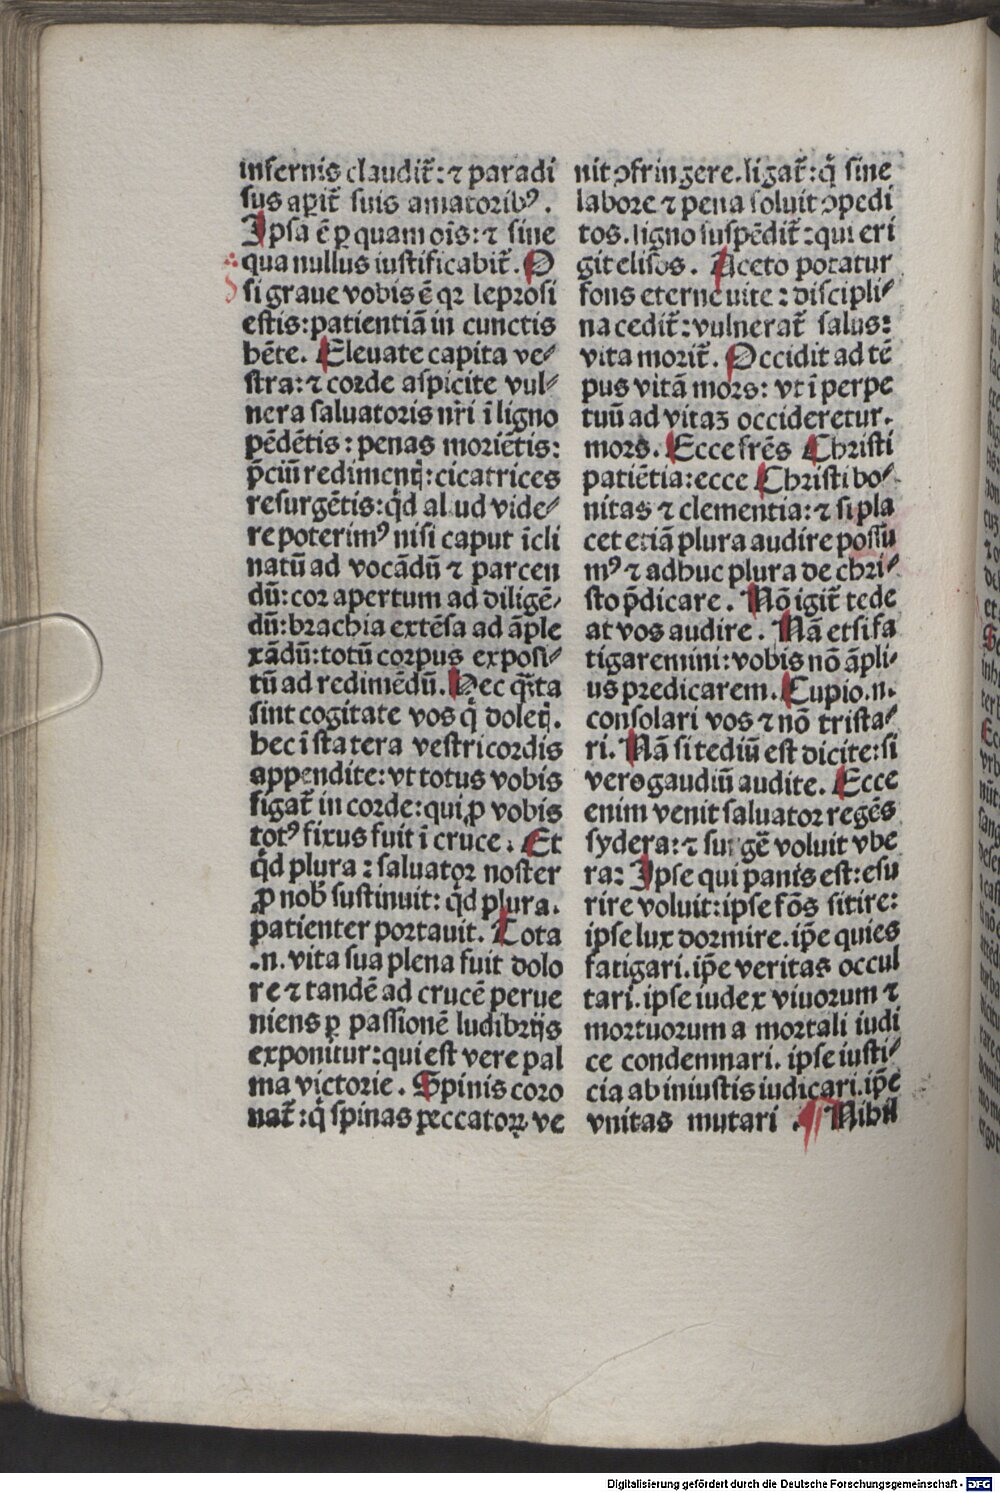 infernis claudit᷒: ⁊ paradi
sus aꝑit᷒ suis amatoribꝰ.
Ipsa ē ꝑ quam oīs: ⁊ sine
qua nullus iustificabit᷒. O
si graue vobis ē qꝛ leprosi
estis: patientiā in cunctis
hēte. Eleuate capita ve⸗
stra: ⁊ corde aspicite vul⸗
nera saluatoris nr̄i ī ligno
pēdētis: penas moriētis:
p̄ciū redimentꝭ: cicatrices
resurgētis: qd̄ aliud vide⸗
re poterimꝰ nisi caput īcli
natū ad vocādū ⁊ parcen
dū: cor apertum ad diligē⸗
dū: brachia extēsa ad āple
xādū: totū corpus exposi⸗
tū ad redimēdū. Hec q̄ta
sint cogitate vos q̄ doletꝭ.
hec ī statera vestri cordis
appendite: vt totus vobis
figat᷒ in corde: qui ꝓ vobis
totꝰ fixus fuit ī cruce. Et
qd̄ plura: saluator noster
ꝓ nob̄ sustinuit: qd̄ plura.
patienter portauit. Tota
.n. vita sua plena fuit dolo
re ⁊ tandē ad crucē perue
niens ꝑ passionē ludibrijs
exponitur: qui est vere pal
ma victorie. Spinis coro
nat᷒: q̄ spinas peccatoꝝ ve
nit ꝯfringere. ligat᷒: q̄ sine
labore ⁊ pena soluit ꝯpedi
tos. ligno suspēdit᷒: qui eri
git elisos. Aceto potatur
fons eterne vite: discipli⸗
na cedit᷒: vulnerat᷒ salus:
vita morit᷒. Occidit ad tē
pus vitā mors: vt ī perpe
tuū ad vitaꝫ occideretur.
mors. Ecce frēs Christi
patiētia: ecce Christi bo⸗
nitas ⁊ clementia: ⁊ si pla
cet etiā plura audire possū
mꝰ ⁊ adhuc plura de chri⸗
sto p̄dicare. Nō igit᷒ tede
at vos audire. Nā etsi fa
tigaremini: vobis nō āpli⸗
us predicarem. Cupio .n.
consolari vos ⁊ nō trista⸗
ri. Nā si tediū est dicite: si
vero gaudiū audite. Ecce
enim venit saluator regēs
sydera: ⁊ surgē voluit vbe
ra: Ipse qui panis est: esu
rire voluit: ipse fōs sitire:
ipse lux dormire. ip̄e quies
fatigari. ip̄e veritas occul
tari. ipse iudex viuorum ⁊
mortuorum a mortali iudi
ce condemnari. ipse iusti⸗
cia ab iniustis iudicari. ip̄e
vnitas mutari. ¶ Nihil
Digitalisierung gefördert durch die Deutsche Forschungsgemeinschaft - DFG